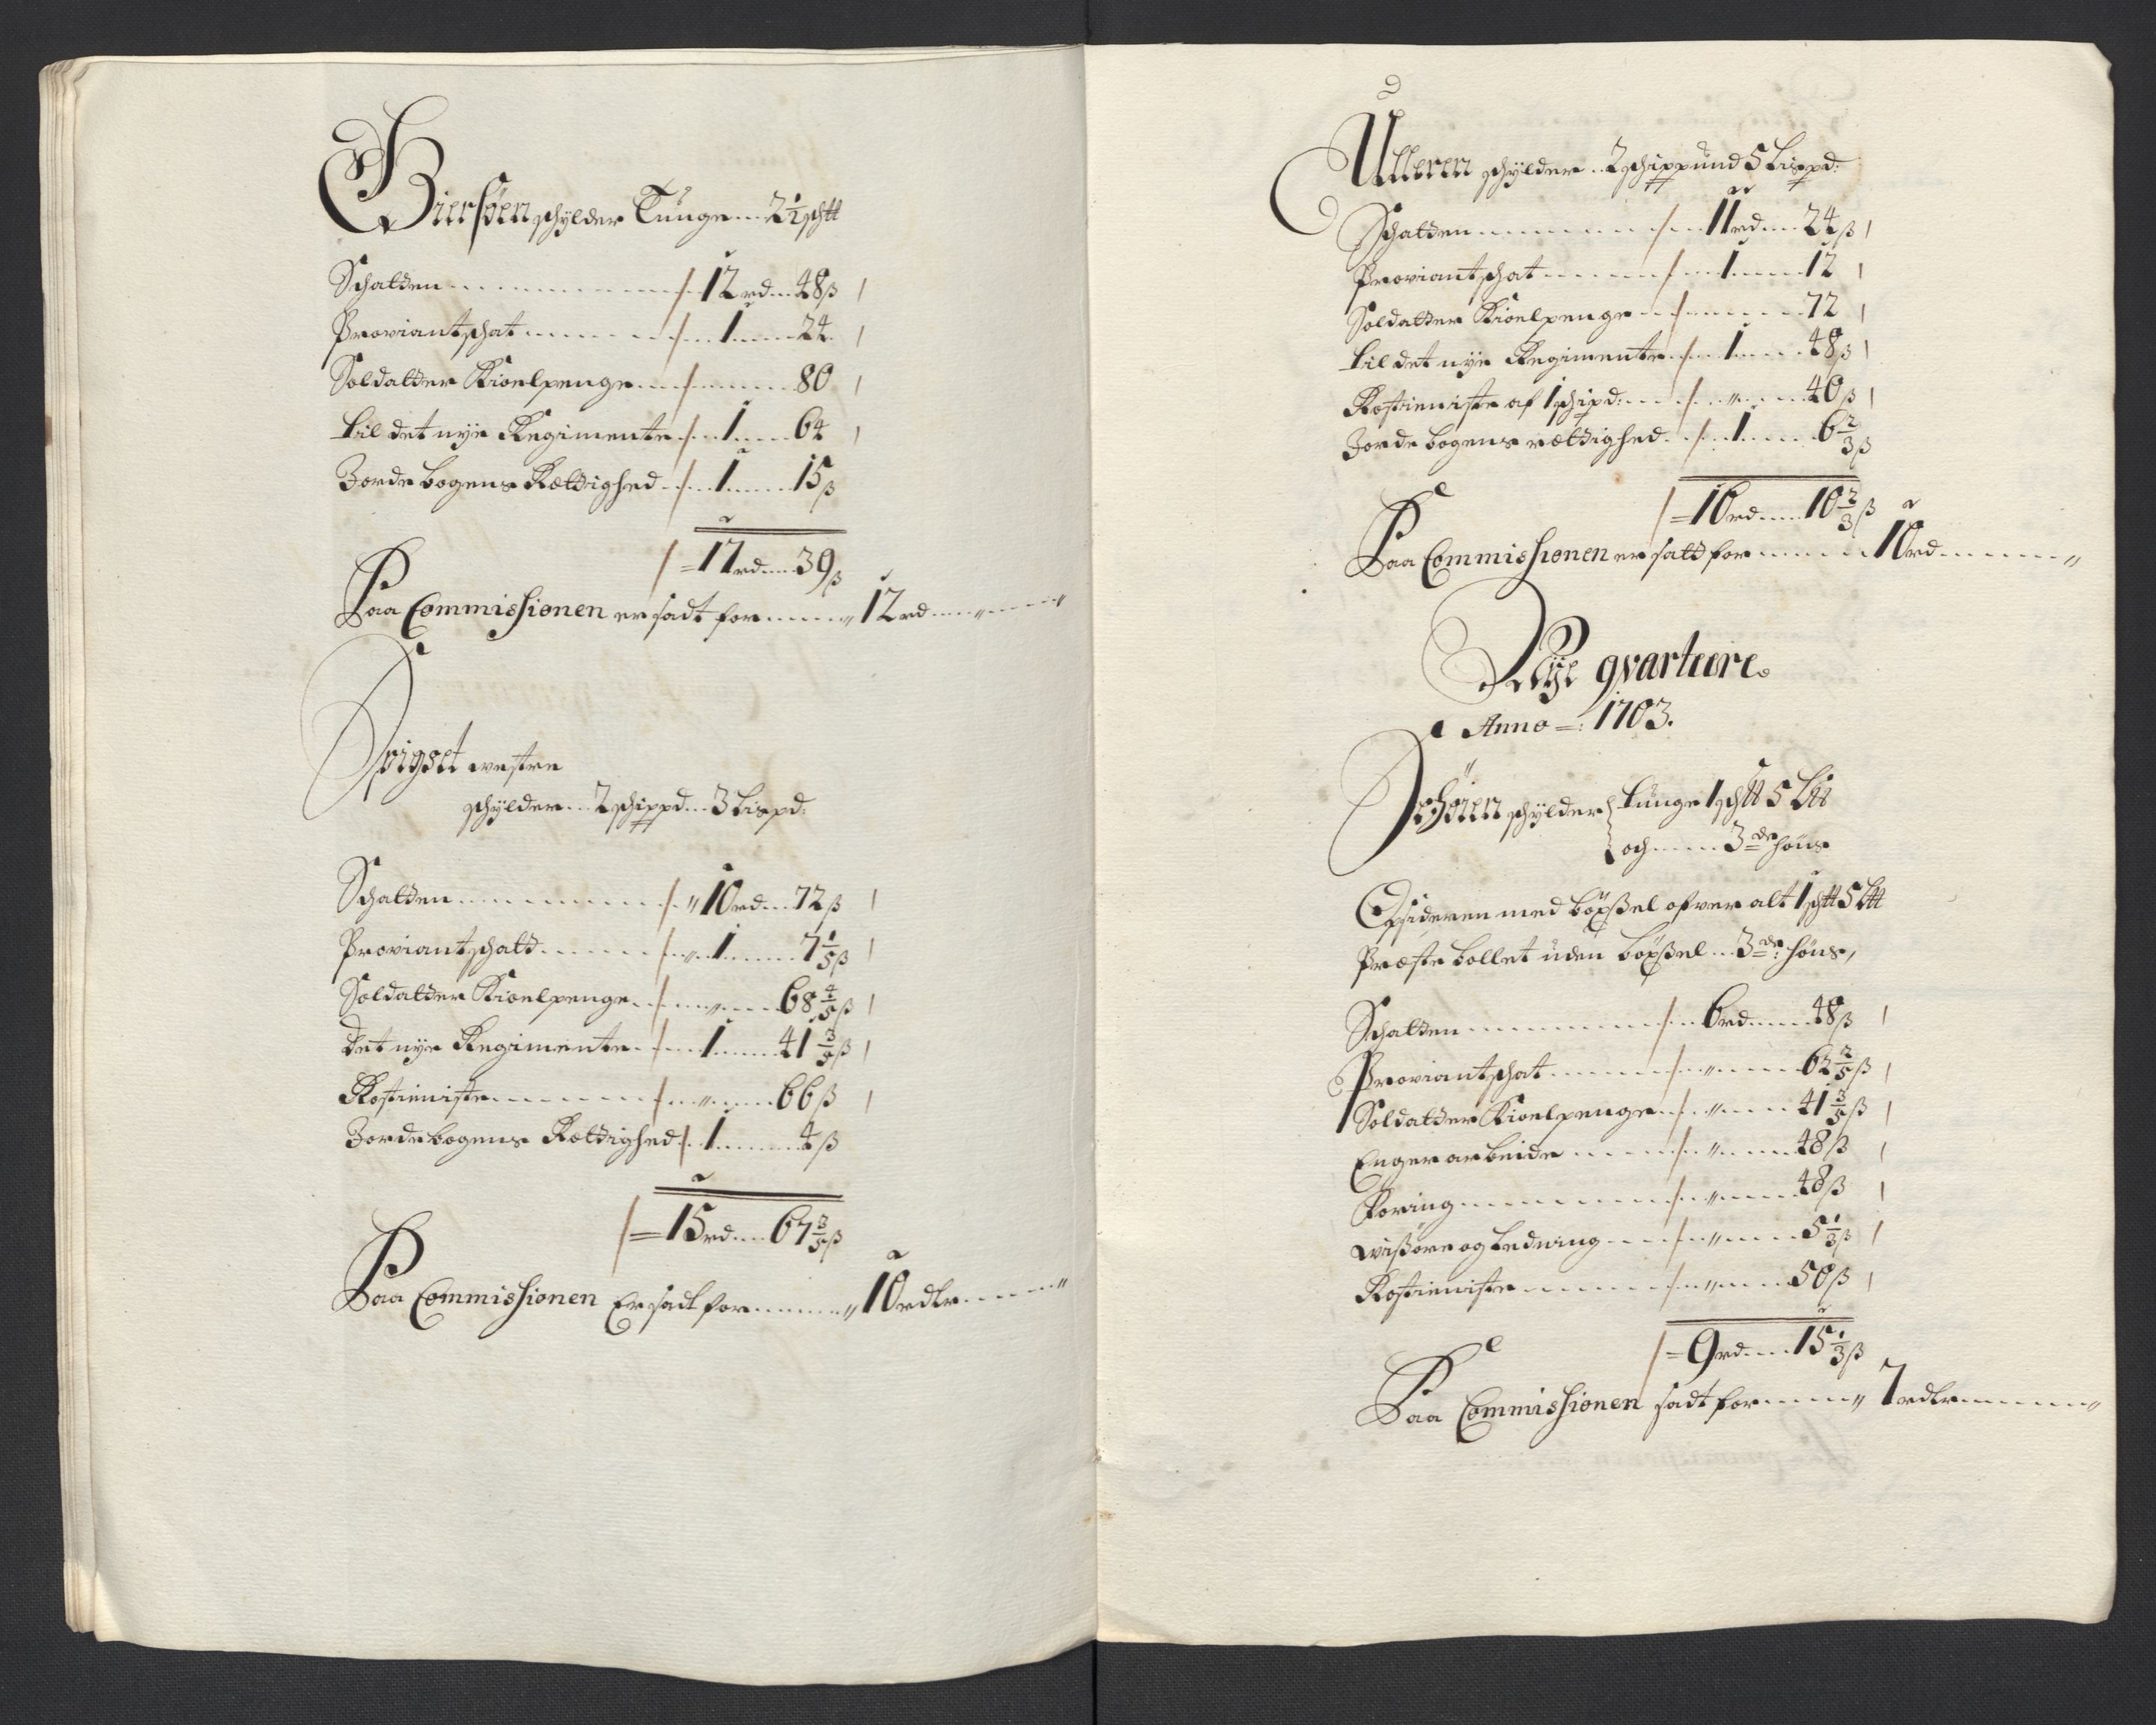 Giersøen schylder Tunge... 2½ schtt
Schatten ... 12 rd ... 48 ß
Proviantschat ... 1 ... 24
Soldatter Kioelpenge ... 80
til det nye Regimente ... 1 ... 64
Jordebogens Rettighed ... 1 ... 15 ß
= 17 rd ... 39 ß
Paa Commissionen er sadt for ... 12 rd ...
vestre
schylder ... 2 schippd ... 3 Lispd:
Schatten ... 10 rd ... 72 ß
Proviantschatt ... 1 ... 7 1/5 ß
Soldatter Kioelpenge ... 68 4/5 ß
det nye Regimente ... 1 ... 41 3/5 ß
Rostieniste ... 66 ß
Jordebogens Rettighed 1 ... 4 ß
= 15 rd ... 67 3/5 ß
Paa Commissionen Er sadt for ... 10 rdlr ...
Ulleren schylder .. 2 schippund 5 Lispd:
Schatten ... 11 rd ... 24 ß
Proviantschat ... 1 ... 12
Soldatter Kioelpenge ... 72
til det nye Regimente ... 1 ... 48 ß
Rostieniste af 1 schipd: ... 40 ß
Jordebogens rettighed ... 1 ... 6 2/3 ß
= 16 rd ... 10 2/3 ß
Paa Commissionen er satt for ... 10 rd ...
Nye qvarteere.
Anno =: 1703.
schylder tunge 1 schtt 5 Ltt
och ... 3 de høns
Epsideren med böxßel ofver alt 1 schtt 5 Ltt
Præste bollet uden böxßel ... 3 de: høns,
Schatten ... 6 rd ... 48 ß
Proviantschat ... 62 2/5 ß
Soldatter Kioelpenge ... 41 3/5 ß
Engerarbeide ... 48 ß
Foring ... 48 ß
Wißøre og Ledning ... 5 1/3 ß
Rostieniste ... 50 ß
= 9 rd ... 15 1/3 ß
Paa Commissionen sadt for ... 7 rdlr ...